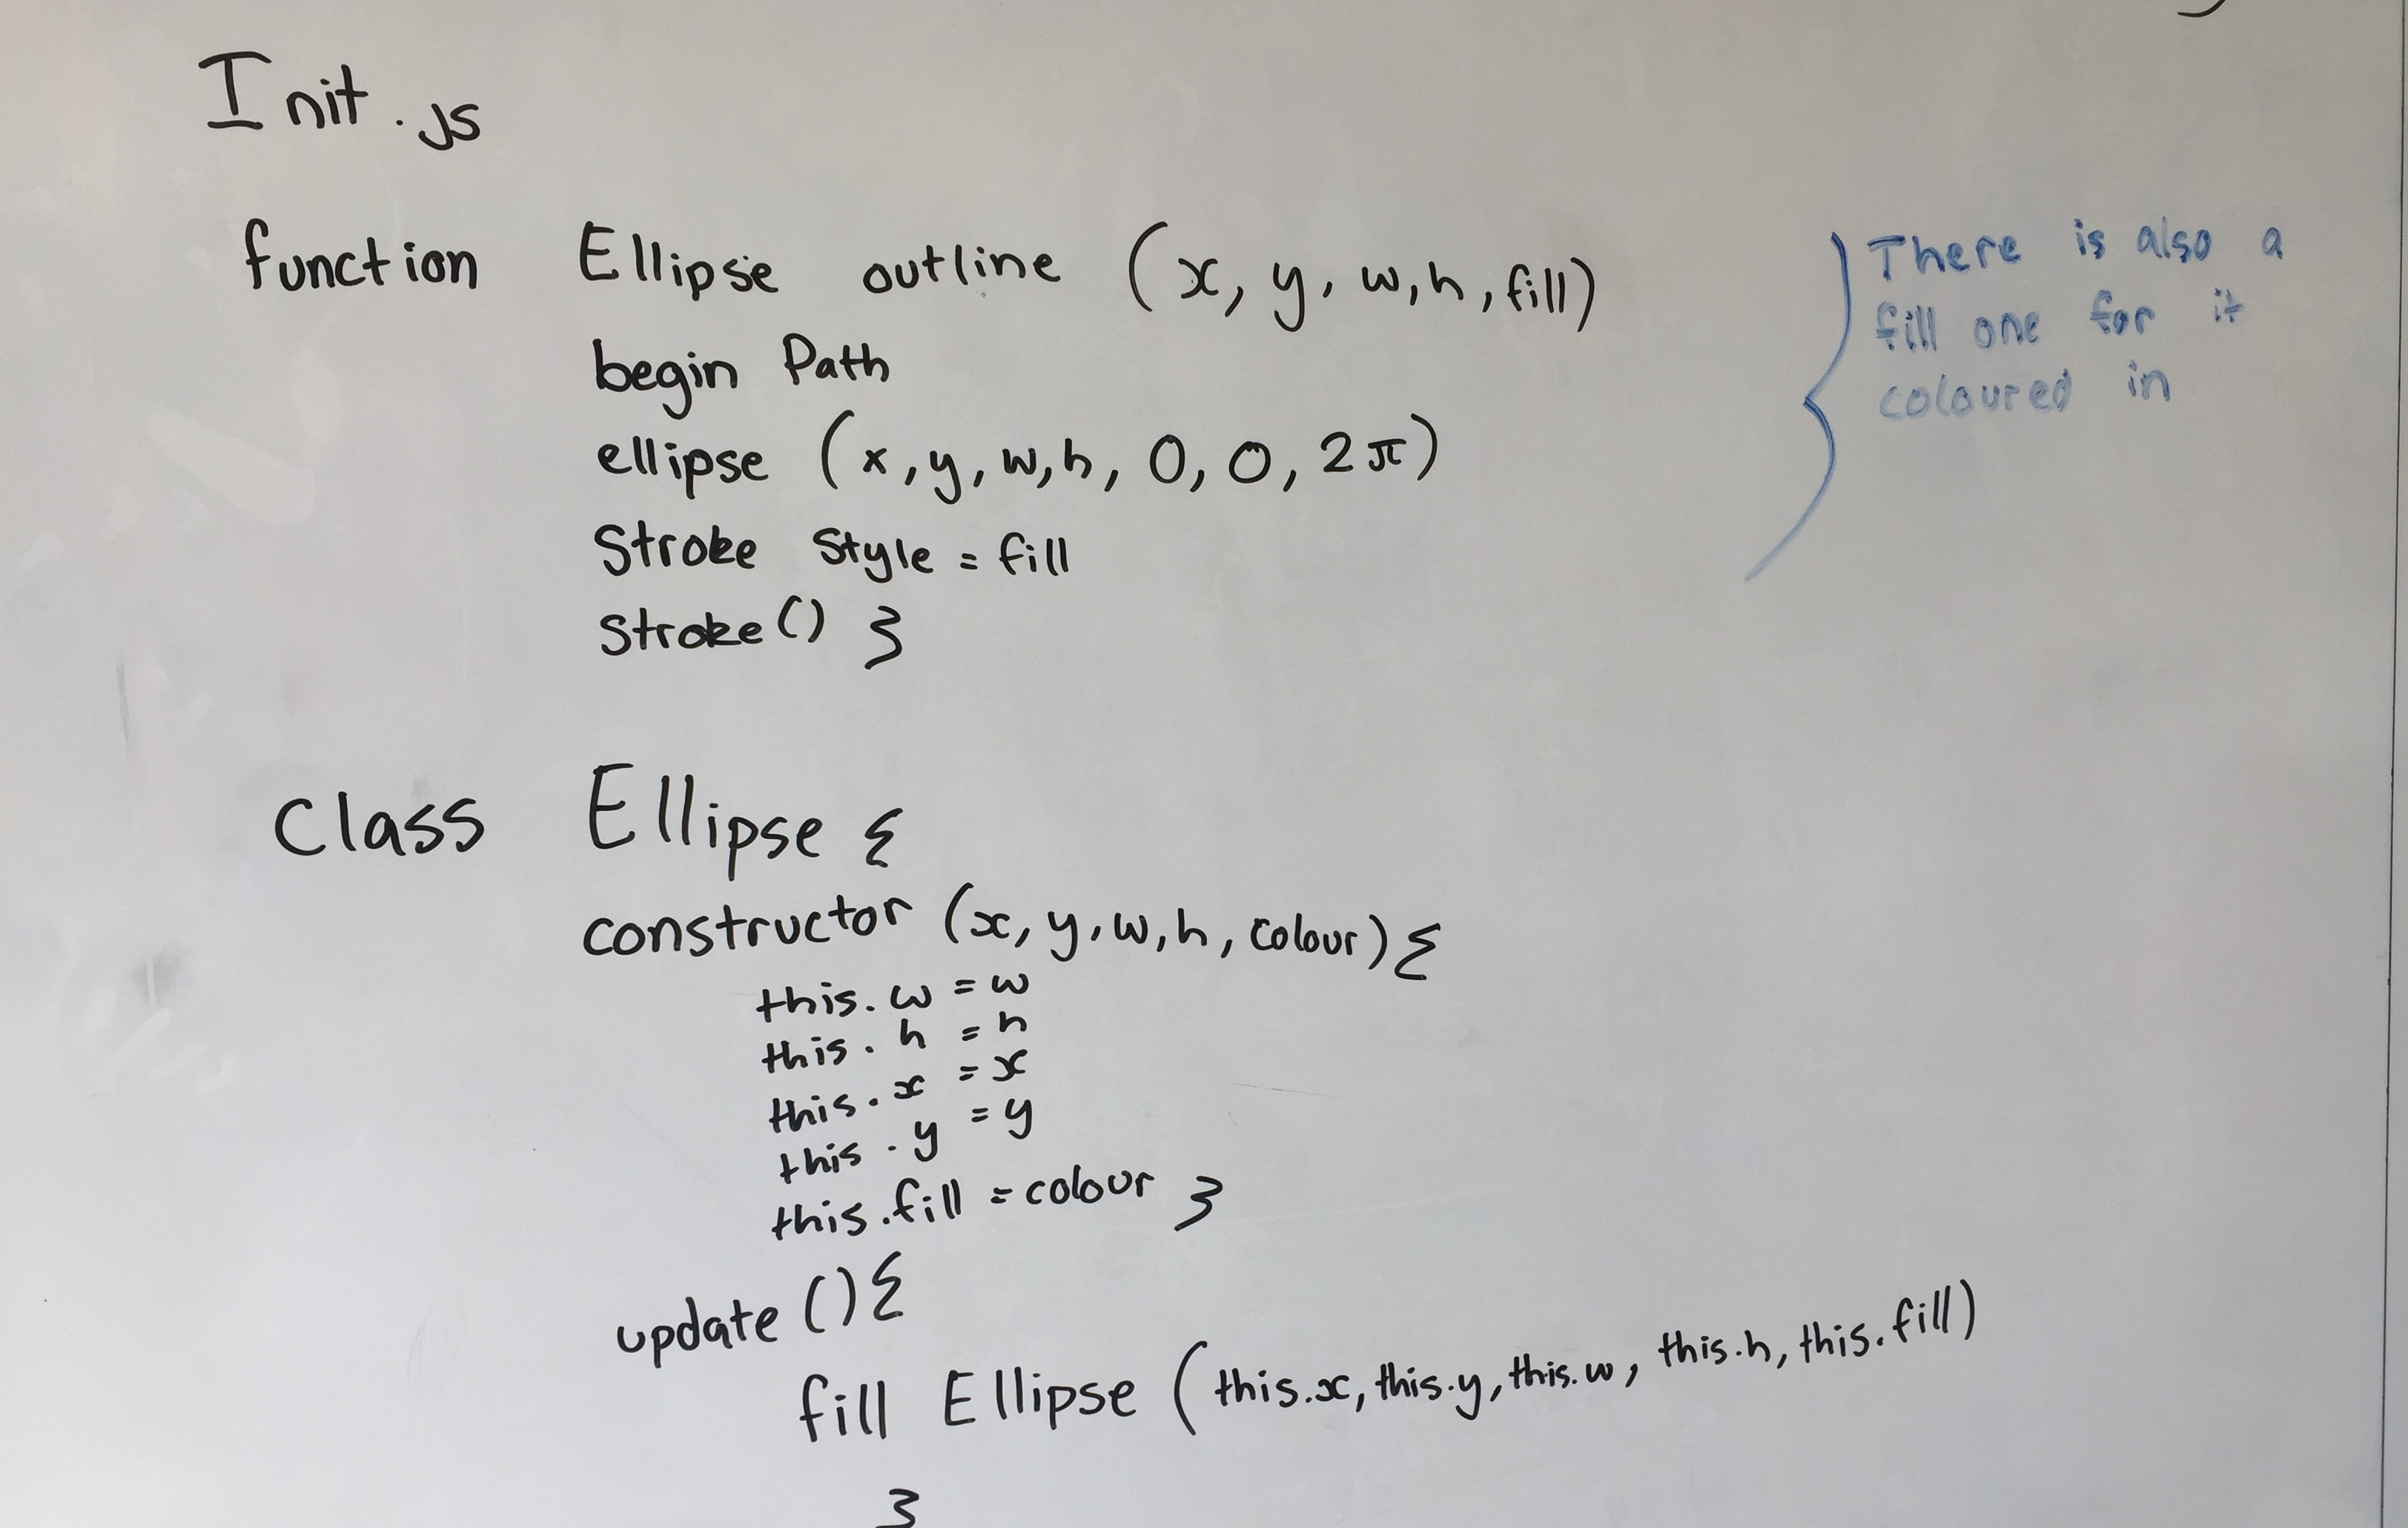 Init.js
function Ellipse outline (x, y, w, h, fill)
begin Path
ellipse (x, y, w, h, 0, 0, 2π)
Stroke Style = fill
Stroke() }
There is also a
fill one for it
coloured in
Class Ellipse {
constructor (x, y, w, h, colour) {
this.w = w
this.h = h
this.x = x
this.y = y
this.fill = colour }
update () {
fill Ellipse (this.x, this.y, this.w, this.h, this.fill)
}